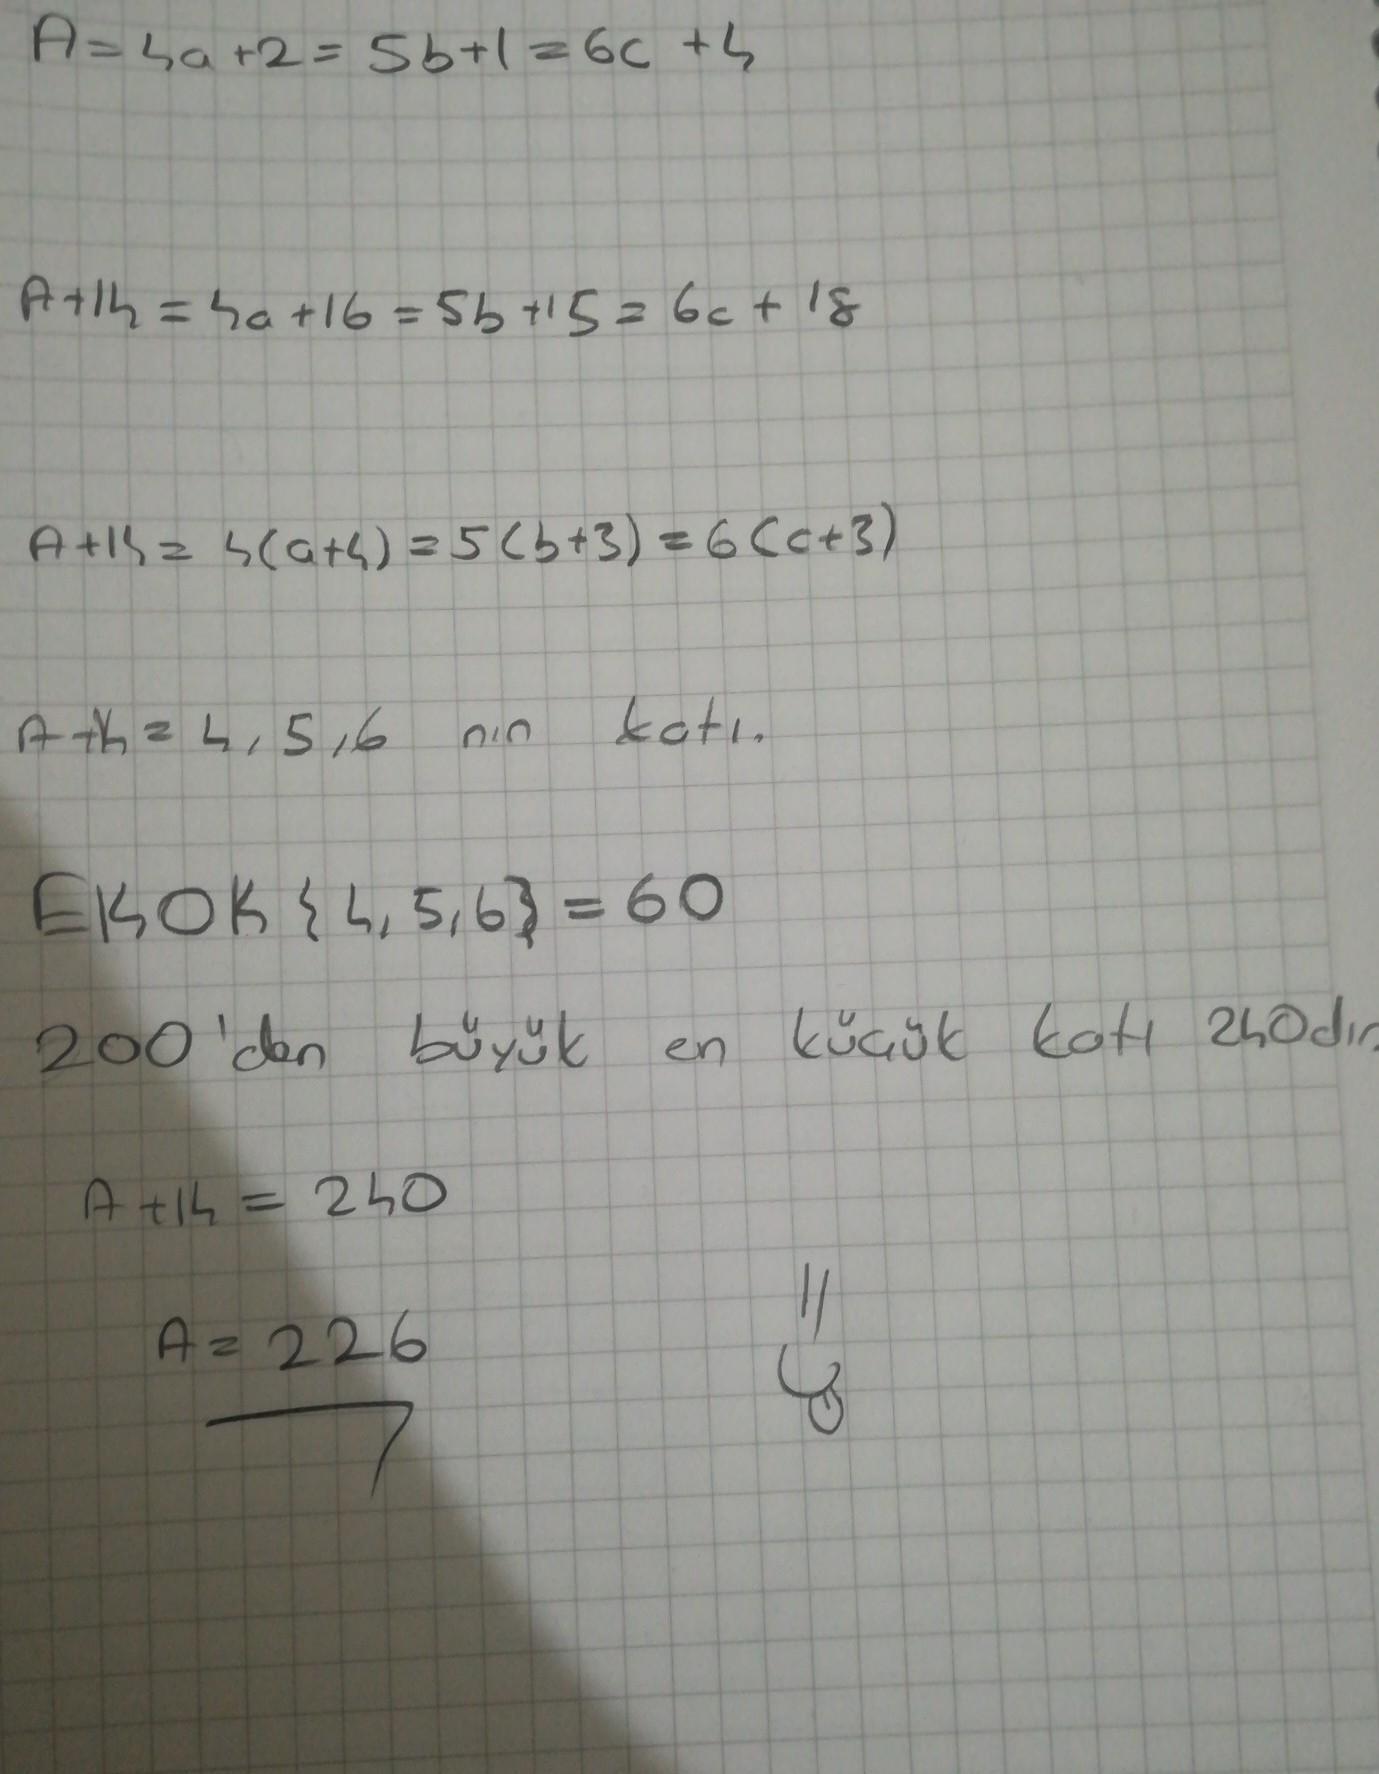 A = 4a + 2 = 5b + 1 = 6c + 4
A + 14 = 4a + 16 = 5b + 15 = 6c + 18
A + 14 = 4(a + 4) = 5(b + 3) = 6(c + 3)
A + 14 = 4, 5, 6 nın katı.
EKOK {4, 5, 6} = 60
200'den büyük en küçük katı 240dır
A + 14 = 240
A = 226